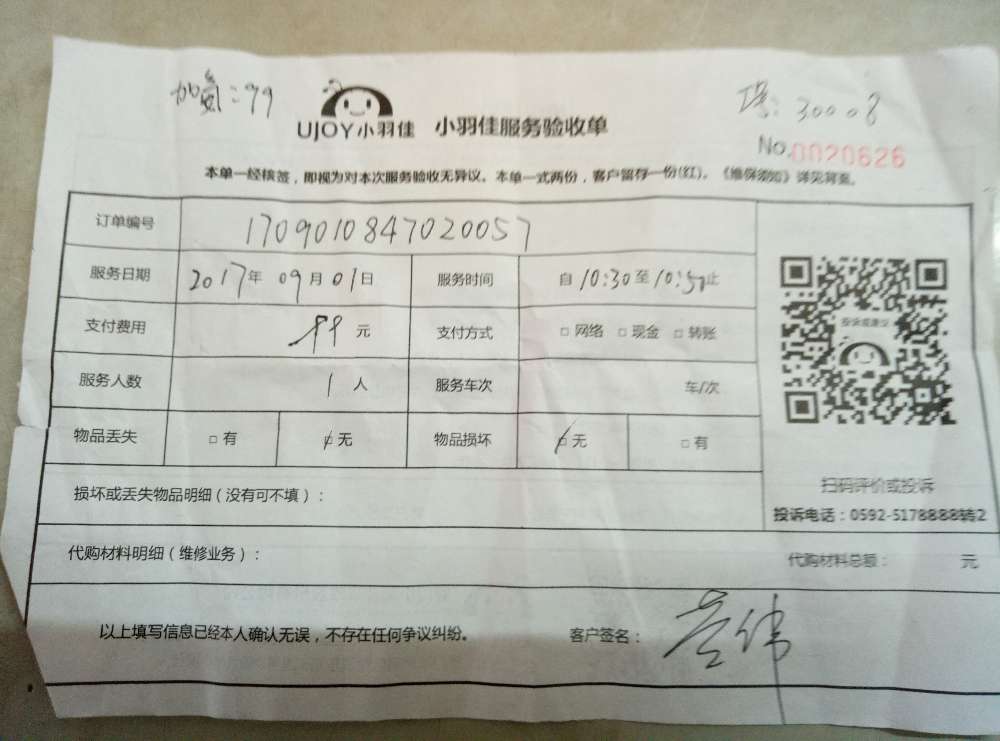 加氨:99
30008
UJOY小羽佳 小羽佳服务验收单
No.0020626
本单一经核签,即视为对本次服务验收无异议。本单一式两份,客户留存一份(红)。《维保须知》详见背面。
订单编号 1709010847020057
服务日期 2017年 09月 01日 服务时间 自 10:30 至 10:50 止
支付费用 99 元 支付方式 □ 网络 □ 现金 □ 转账
服务人数 1 人 服务车次 车/次
物品丢失 □ 有 □ 无 物品损坏 □ 无 □ 有
投诉或建议
损坏或丢失物品明细(没有可不填):
扫码评价或投诉
投诉电话:0592-5178888转2
代购材料明细(维修业务): 代购材料总额: 元
以上填写信息已经本人确认无误,不存在任何争议纠纷。 客户签名: